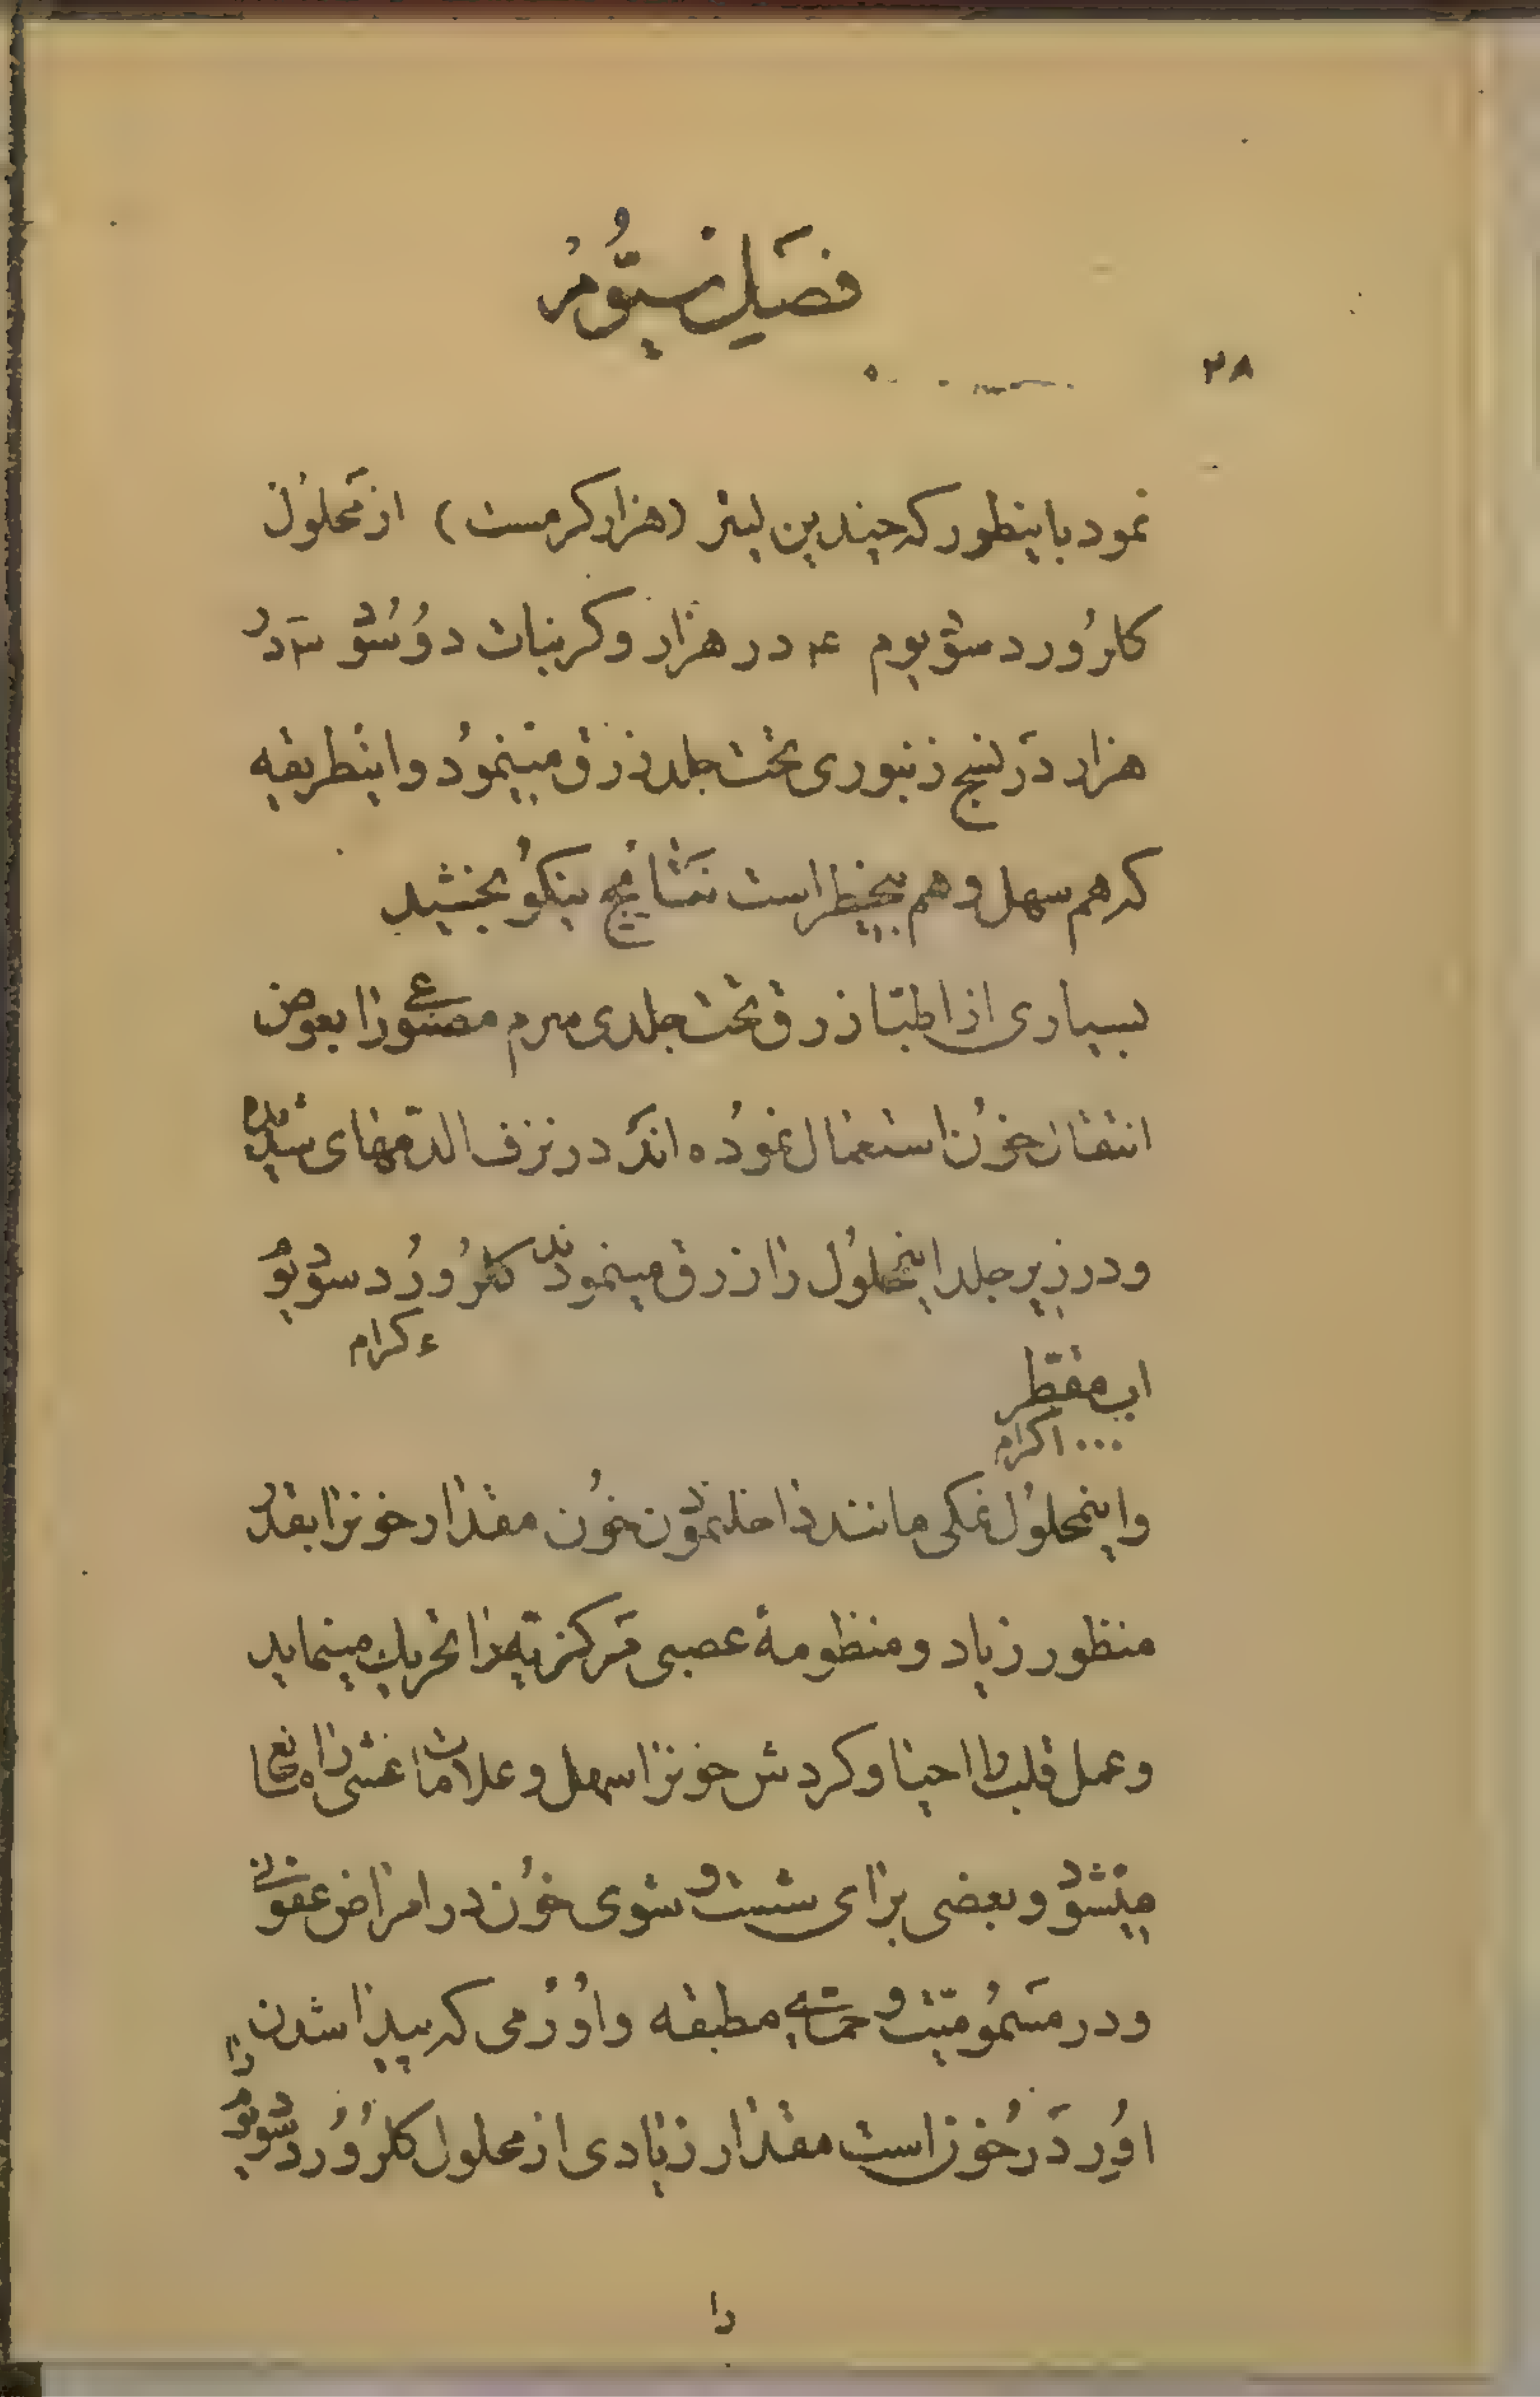 فصل سیّوم
۲۸
نمود باینطور که چندین لیتر (هزار کرمست) از محلول
کلرور د سودیوم ۴ در هزار و کربنات دو سود ۳ در
هزار در نسج زنبوری تحت جلد زرق مینمود و اینطریقه
که هم سهل و هم بیخطر است نتایج نیکو بخشید
بسیاری از اطبّا زرق تحت جلدی سرم مصنوعی را بعوض
انتقال خون استعمال نموده اند در نزف الدّمهای شدیده
و در زیر جلد اینمحلول را زرق مینمودند کلرور د سودیوم
۴ کرام
اب مقطّر
۱۰۰۰ کرام
و اینمحلول نمکی مانند داخل نمودن خون مقدار خونرا بقدر
منظور زیاد و منظومهٔ عصبی مرکزیّه را تحریک مینماید
و عمل قلب را احیا و کردش خونرا سهل و علامات غشی را مانع
میشود و بعضی برای شست و شوی خون در امراض عفونی
و در مسمومیّت و حمّای مطبقه و اورمی که پیدا شدن
اوره در خون است مقدار زیادی از محلول کلرور د سودیوم
را